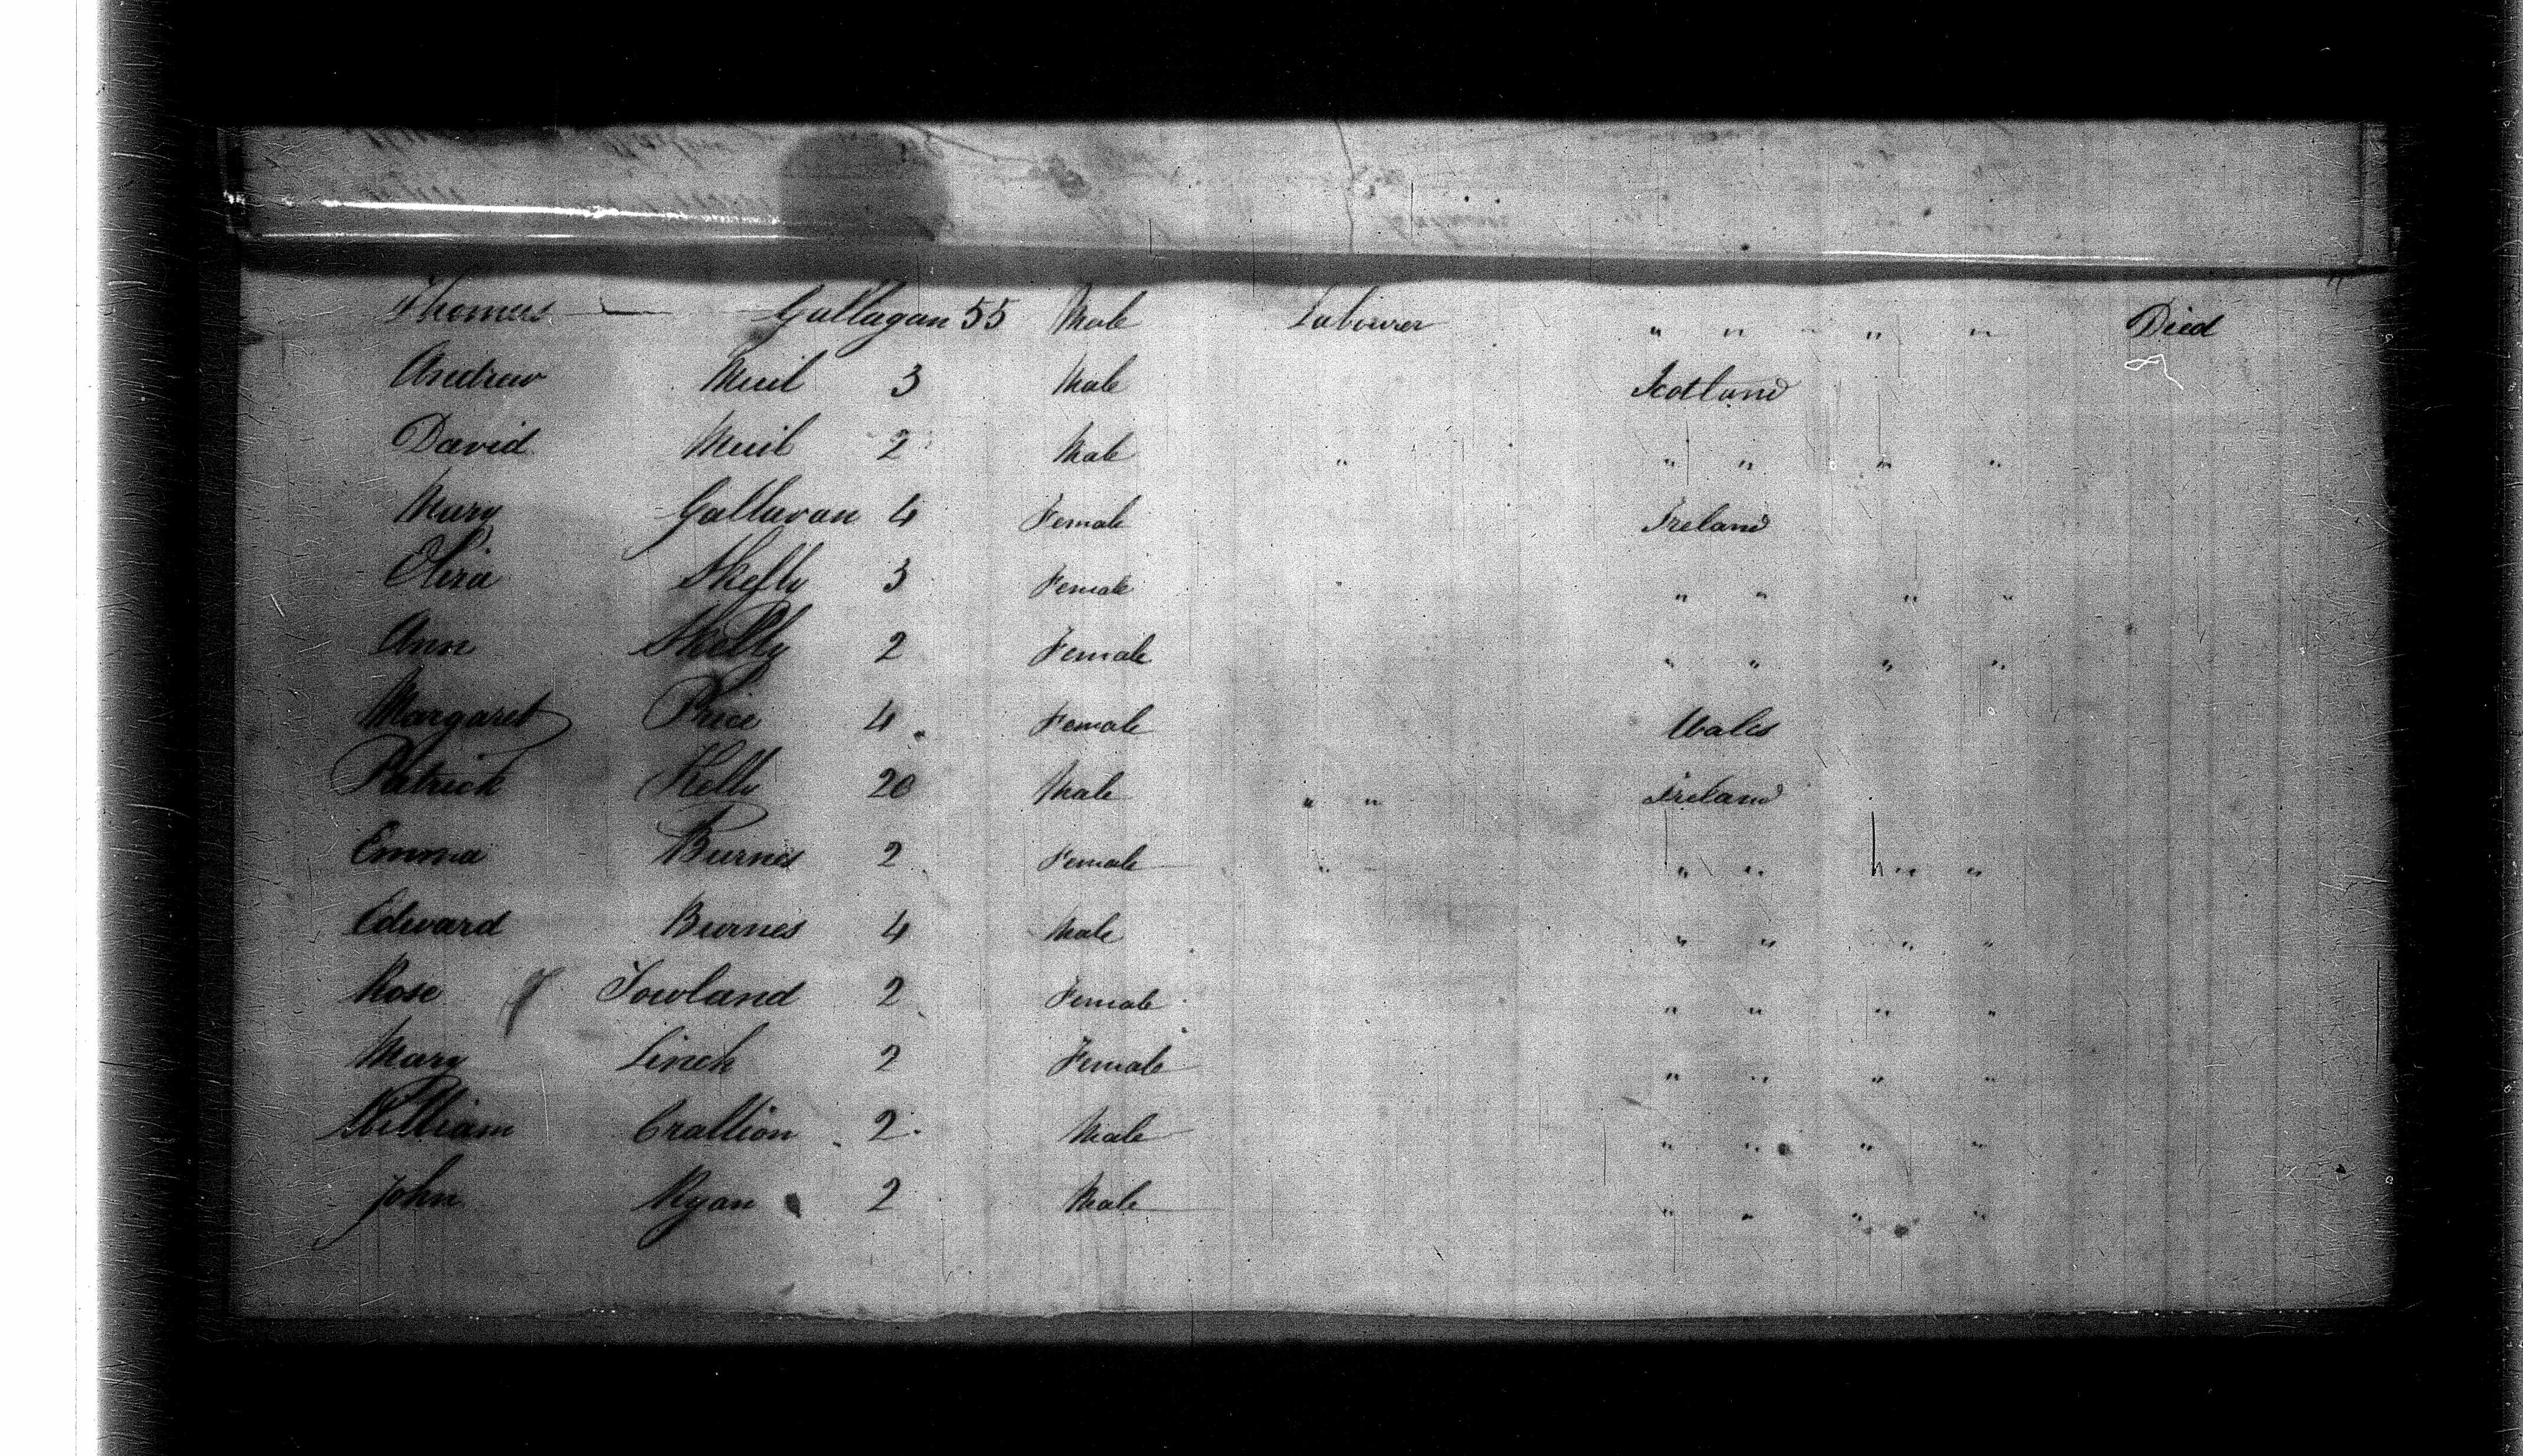 Thomas — Gallagan 55 Male Labourer " " " " Died
Andrew Muil 3 Male Scotland
David Muil 2 Male " " " " "
Mary Gallavan 4 Female Ireland
Eliza Skelly 3 Female " " " "
Ann Skelly 2 Female " " " "
Margaret Price 4 Female Wales
Patrick Kelly 20 Male " " Ireland
Emma Burnes 2 Female " " " " "
Edward Burnes 4 Male " " " "
Rose Towland 2 Female " " " "
Mary Linch 2 Female " " " "
William Crallion 2 Male " " " "
John Ryan 2 Male " " " "